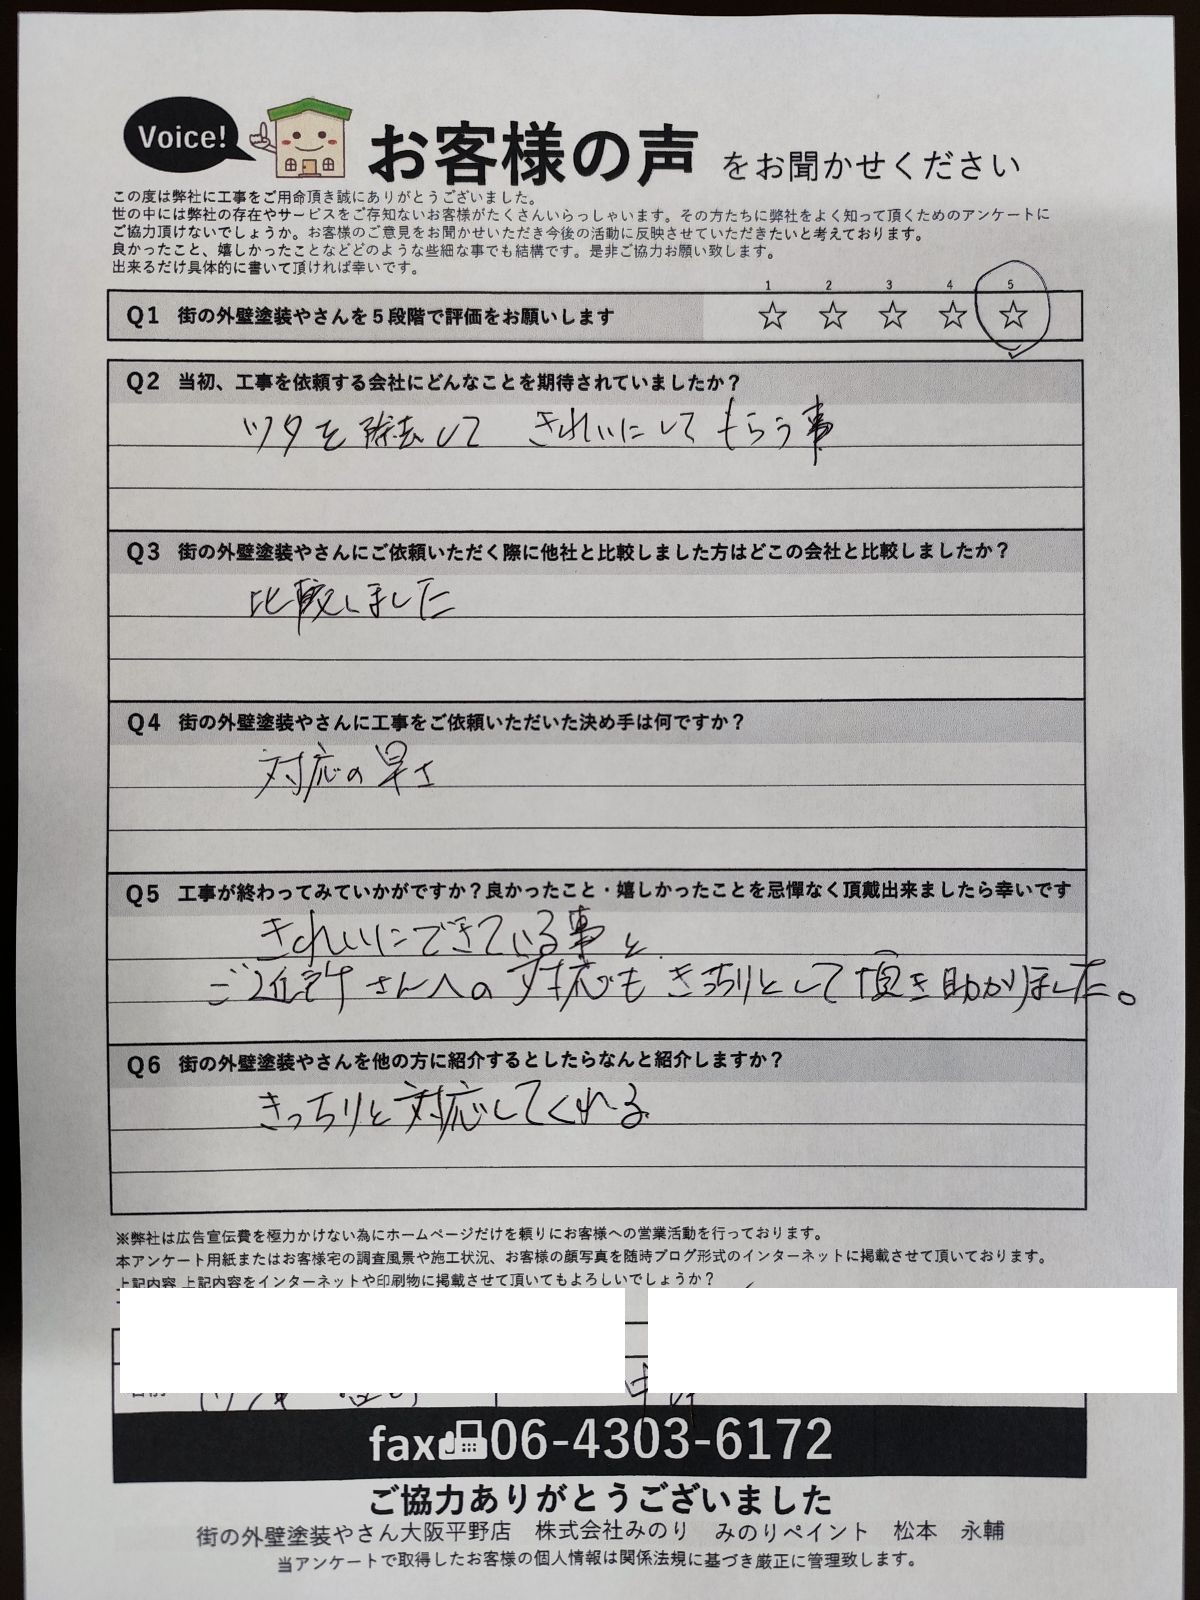 Voice!
お客様の声 をお聞かせください
この度は弊社に工事をご用命頂き誠にありがとうございました。
世の中には弊社の存在やサービスをご存知ないお客様がたくさんいらっしゃいます。その方たちに弊社をよく知って頂くためのアンケートに
ご協力頂けないでしょうか。お客様のご意見をお聞かせいただき今後の活動に反映させていただきたいと考えております。
良かったこと、嬉しかったことなどどのような些細な事でも結構です。是非ご協力お願い致します。
出来るだけ具体的に書いて頂ければ幸いです。
1 2 3 4 5
Q1 街の外壁塗装やさんを5段階で評価をお願いします ☆ ☆ ☆ ☆ ☆
Q2 当初、工事を依頼する会社にどんなことを期待されていましたか?
ツタを除去して きれいにしてもらう事
Q3 街の外壁塗装やさんにご依頼いただく際に他社と比較しました方はどこの会社と比較しましたか?
比較しました
Q4 街の外壁塗装やさんに工事をご依頼いただいた決め手は何ですか?
対応の早さ
Q5 工事が終わってみていかがですか?良かったこと・嬉しかったことを忌憚なく頂戴出来ましたら幸いです
きれいにできている事と
ご近所さんへの対応もきっちりとして頂き助かりました。
Q6 街の外壁塗装やさんを他の方に紹介するとしたらなんと紹介しますか?
きっちりと対応してくれる
※弊社は広告宣伝費を極力かけない為にホームページだけを頼りにお客様への営業活動を行っております。
本アンケート用紙またはお客様宅の調査風景や施工状況、お客様の顔写真を随時ブログ形式のインターネットに掲載させて頂いております。
上記内容 上記内容をインターネットや印刷物に掲載させて頂いてもよろしいでしょうか?
fax 06-4303-6172
ご協力ありがとうございました
街の外壁塗装やさん大阪平野店 株式会社みのり みのりペイント 松本 永輔
当アンケートで取得したお客様の個人情報は関係法規に基づき厳正に管理致します。